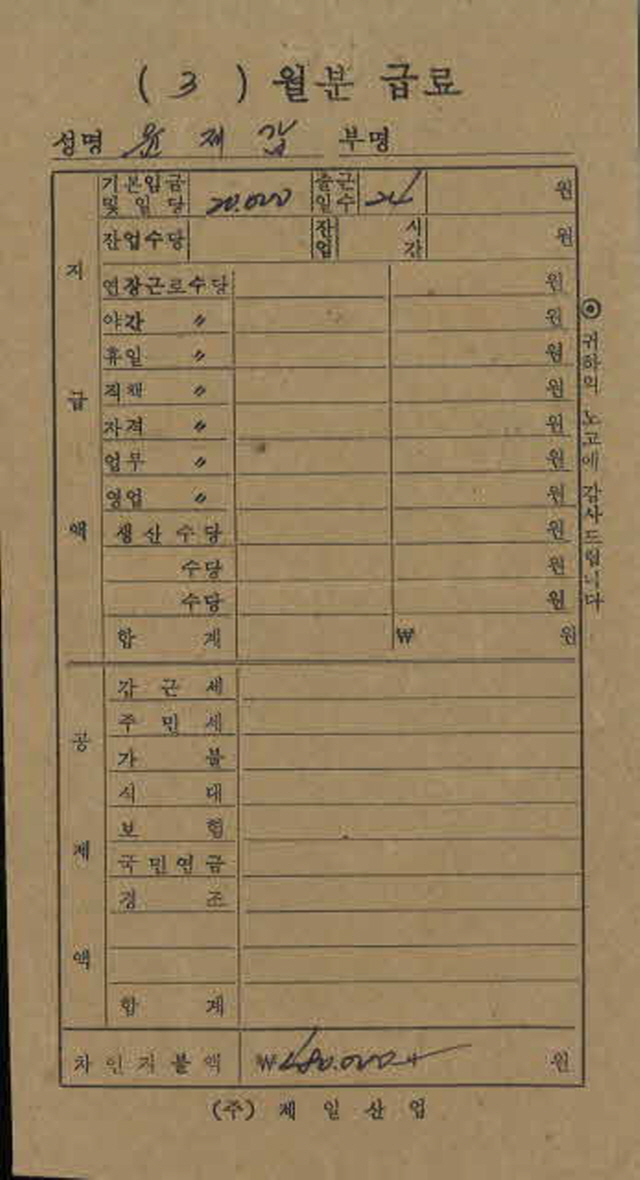 ( 3 ) 월분 급료
성명 윤 재 갑 부명
지 급 액
기본임금 및 일당 20.000 출근 일수 24 원
잔업수당 잔업 시간 원
연장근로수당 원
야간 〃 원
휴일 〃 원
직책 〃 원
자격 〃 원
업무 〃 원
영업 〃 원
생산수당 원
수당 원
수당 원
합 계 ₩ 원
공 제 액
갑 근 세
주 민 세
가 불
식 대
보 험
국민연금
경 조
합 계
차인지불액 ₩480.000 원
◉ 귀하의 노고에 감사드립니다
(주) 제 일 산 업